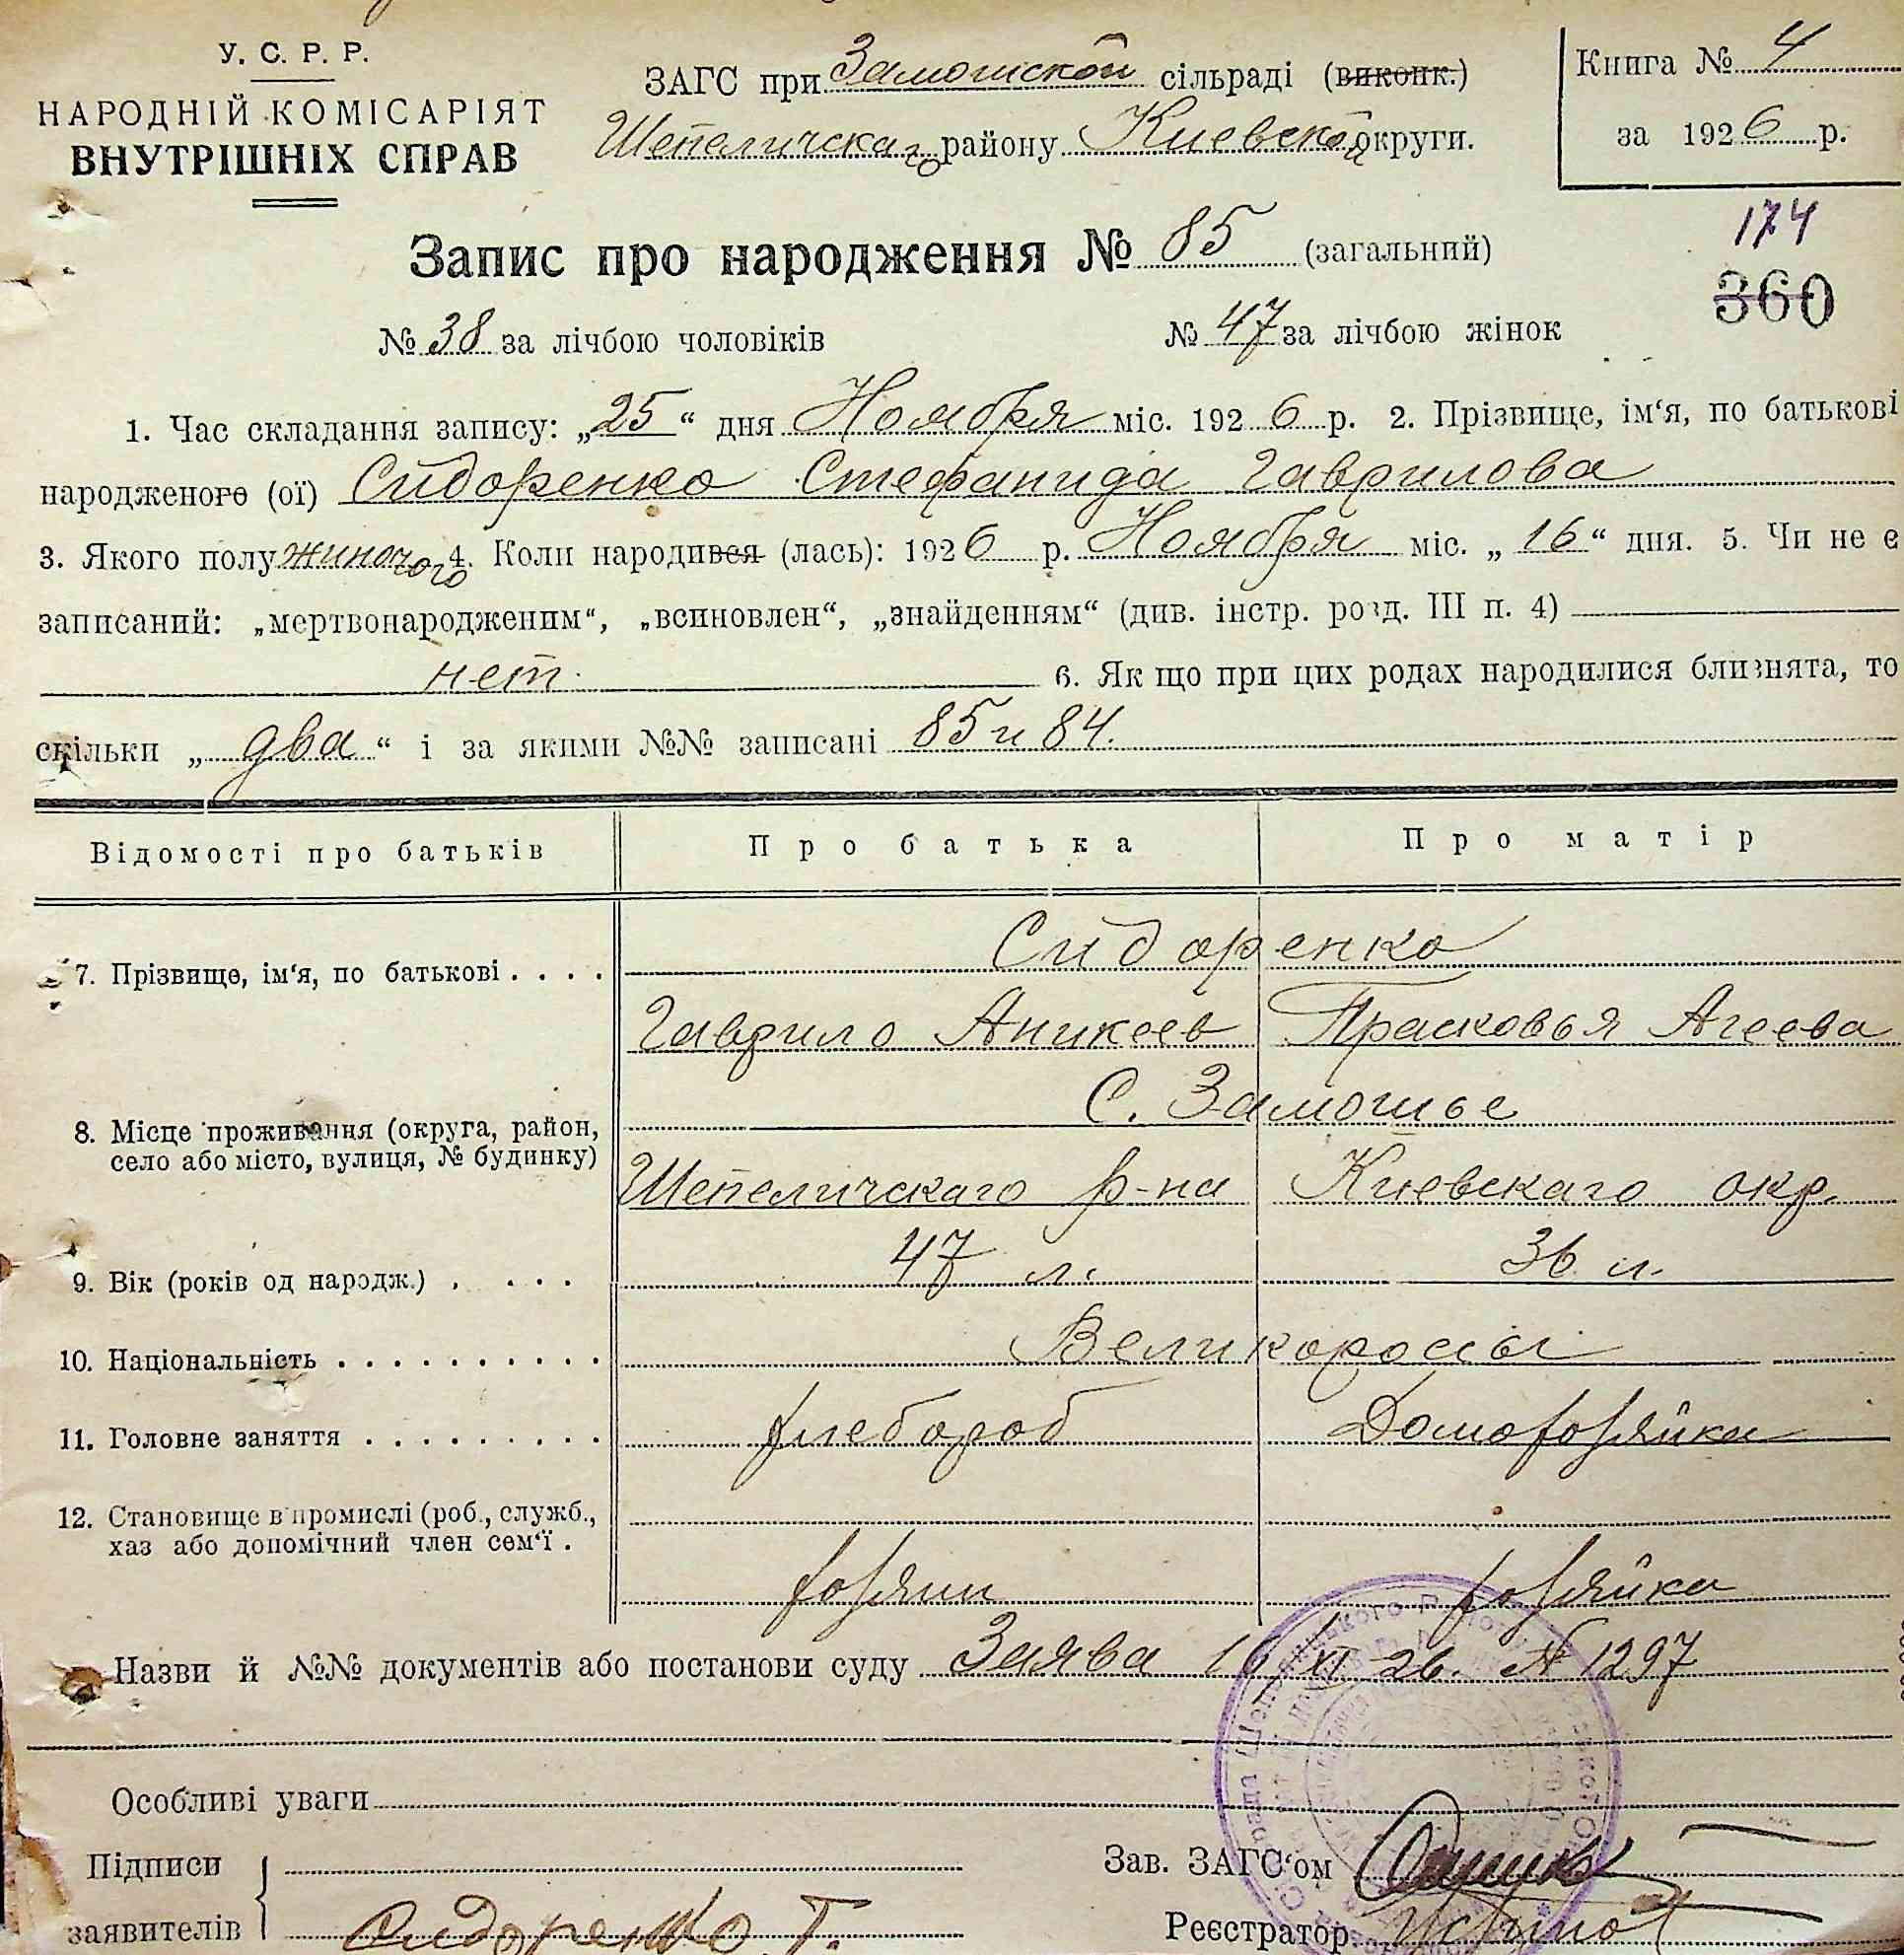 У. С. Р. Р.
НАРОДНІЙ КОМІСАРІЯТ
ВНУТРІШНІХ СПРАВ
ЗАГС при Замошской сільраді (виконк.)
Шепеличскаго району Киевской округи.
Книга № 4
за 1926 р.
174
360
Запис про народження № 85 (загальний)
№ 38 за лічбою чоловіків № 47 за лічбою жінок
1. Час складання запису: „25“ дня Ноября міс. 1926 р. 2. Прізвище, ім‘я, по батькові
народженого (ої) Сидоренко Стефанида Гаврилова
3. Якого полу жиночого 4. Коли народився (лась): 1926 р. Ноября міс. „16“ дня. 5. Чи не є
записаний: „мертвонародженим“, „всиновлен“, „знайденням“ (див. інстр. розд. III п. 4)
нет. 6. Як що при цих родах народилися близнята, то
скільки „два“ і за якими №№ записані 85 и 84.
Відомості про батьків Про батька Про матір
Сидоренко
7. Прізвище, ім‘я, по батькові . . . .
Гаврило Аникеев Прасковья Агеева
С. Замошье
8. Місце проживання (округа, район,
село або місто, вулиця, № будинку)
Шепеличскаго р-на Киевскаго окр.
9. Вік (років од народж.) . . . . 47 л. 36 л.
10. Національність . . . . . . . . . . . Великороссы
11. Головне заняття . . . . . . . . . . хлебороб Домохозяйка
12. Становище в промислі (роб., служб.,
хаз або допомічний член сем‘ї .
хозяин хозяйка
Назви й №№ документів або постанови суду Заява 16/XI-26. № 1297
Особливі уваги
Підписи
заявителів Сидоренко Г.
Зав. ЗАГС‘ом
Реєстратор.